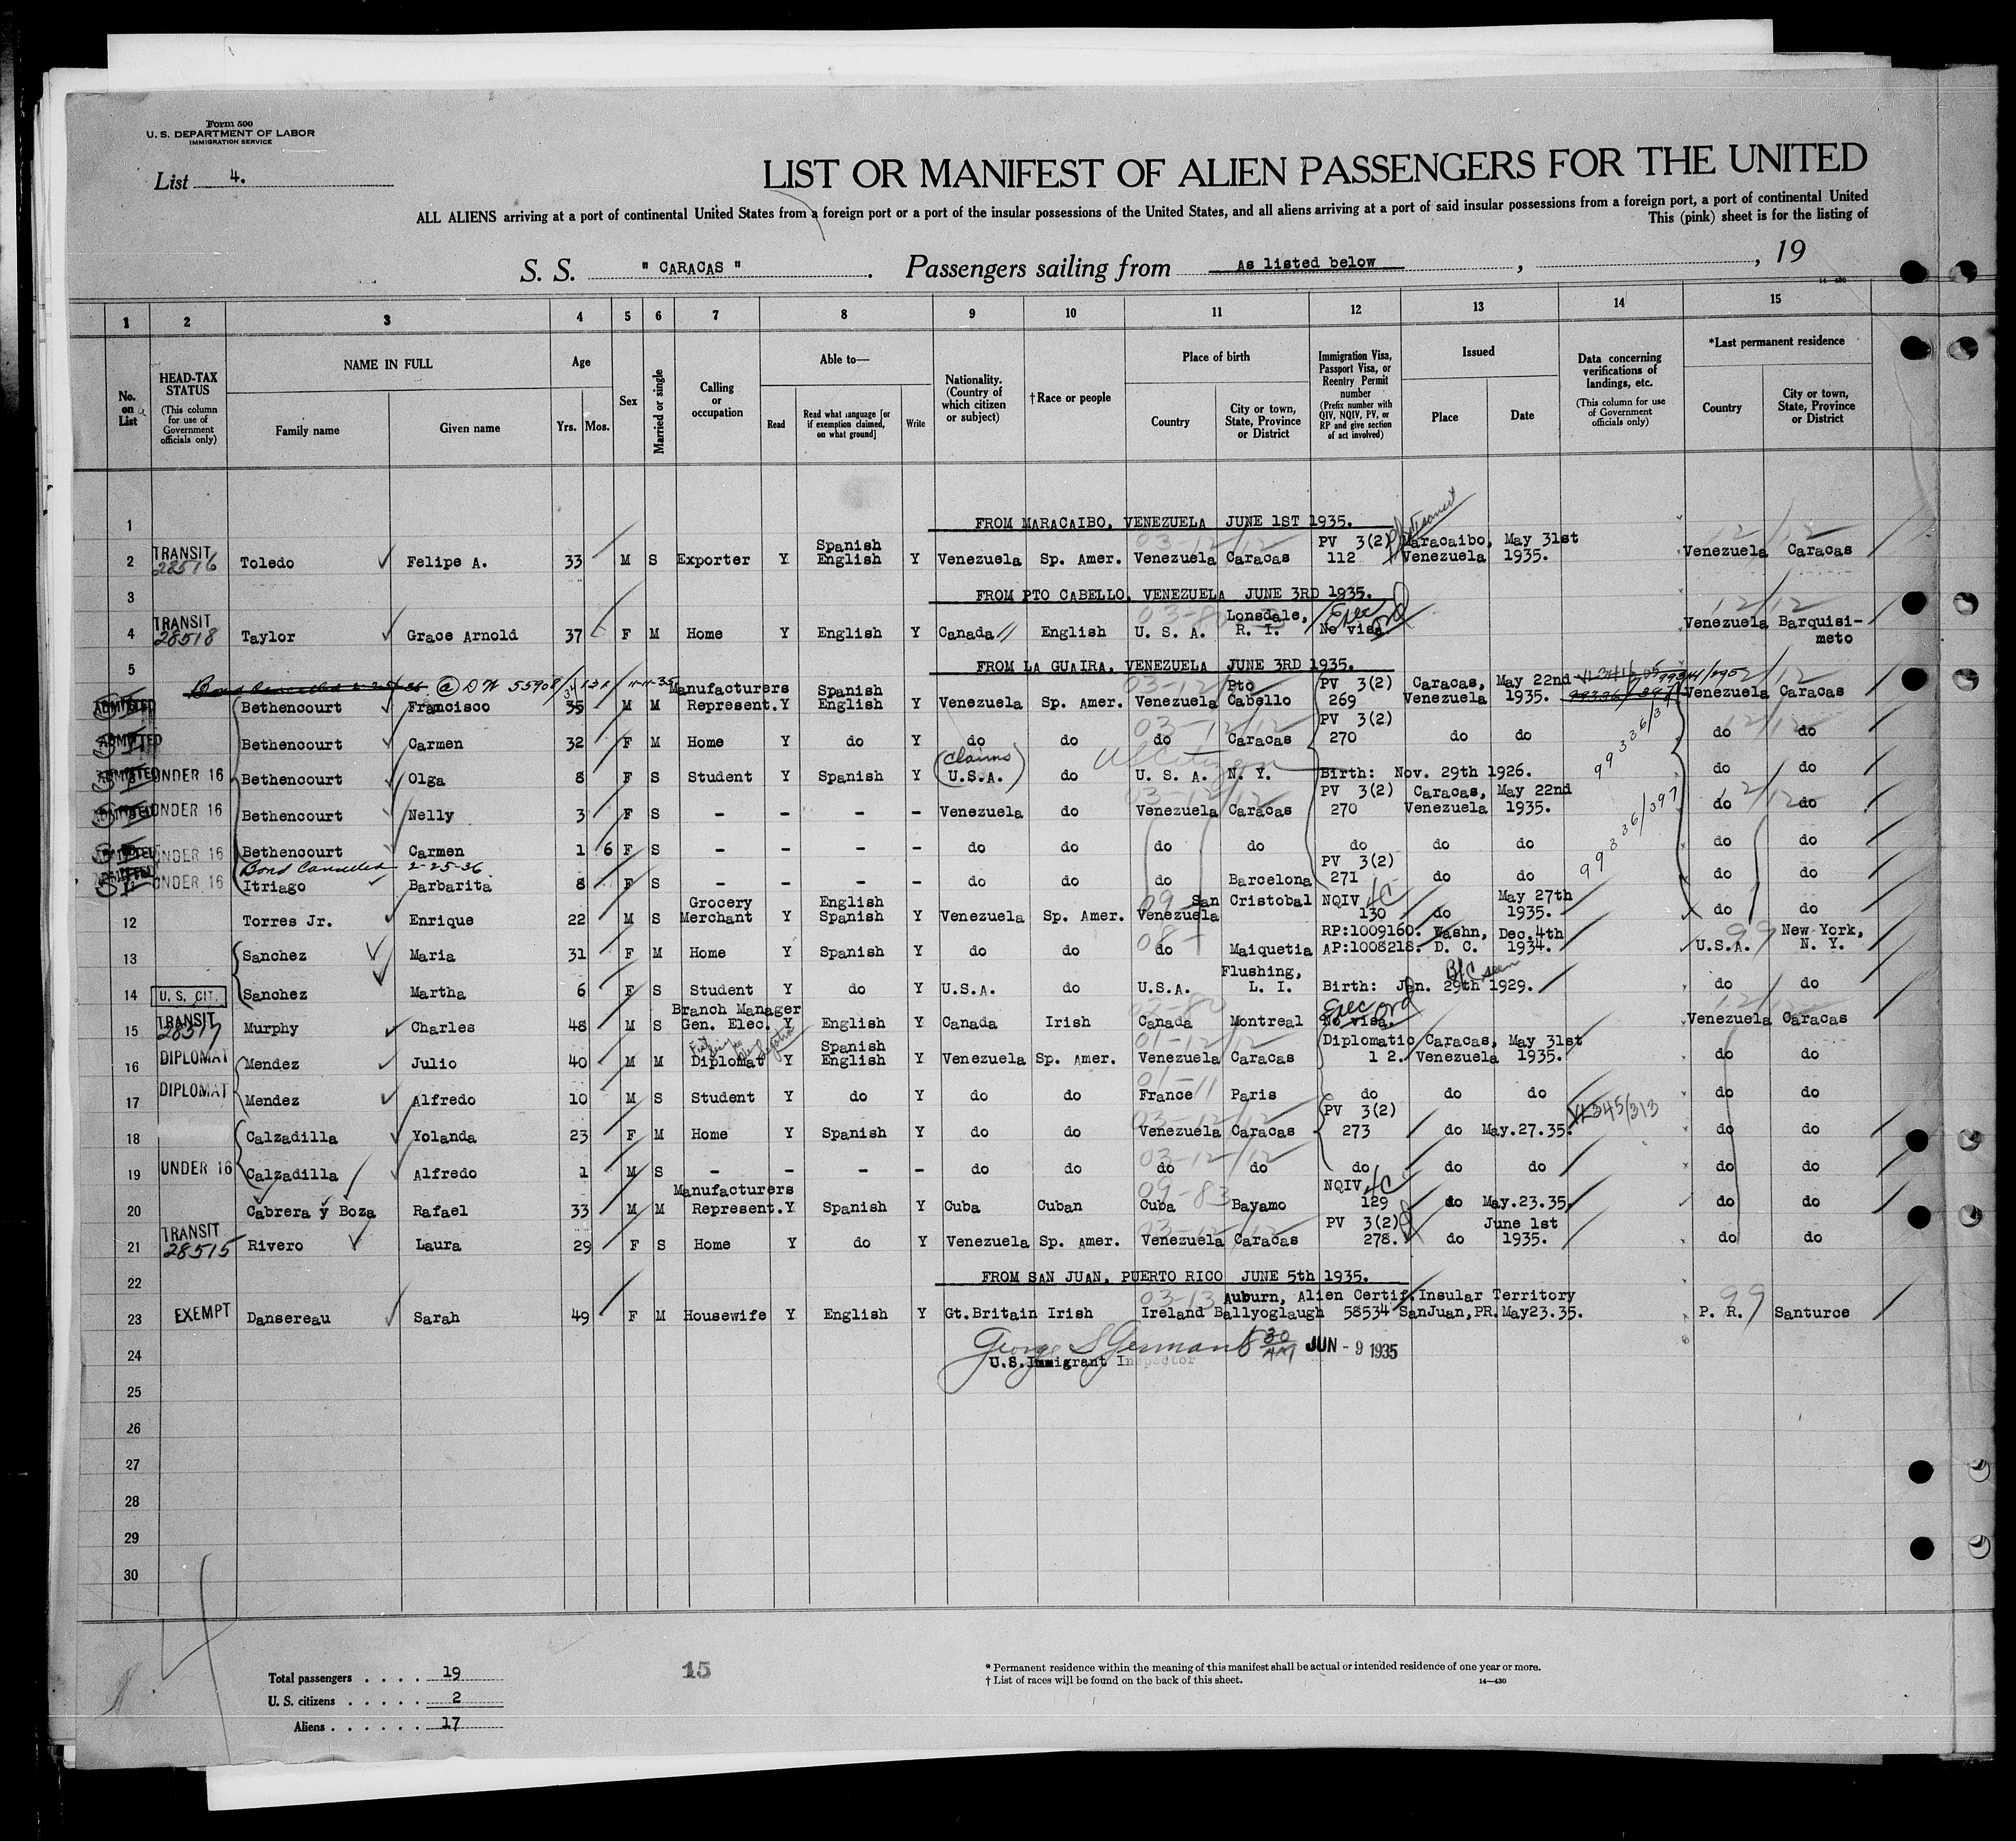 Form 500
U. S. DEPARTMENT OF LABOR
IMMIGRATION SERVICE
List 4.
LIST OR MANIFEST OF ALIEN PASSENGERS FOR THE UNITED
ALL ALIENS arriving at a port of continental United States from a foreign port or a port of the insular possessions of the United States, and all aliens arriving at a port of said insular possessions from a foreign port, a port of continental United
This (pink) sheet is for the listing of
S. S. " CARACAS " . Passengers sailing from As listed below , , 19
14—430
1 2 3 4 5 6 7 8 9 10 11 12 13 14 15
No. on List
HEAD-TAX STATUS (This column for use of Government officials only)
NAME IN FULL
Family name Given name
Age
Yrs. Mos.
Sex
Married or single
Calling or occupation
Able to—
Read
Read what language [or if exemption claimed, on what ground]
Write
Nationality. (Country of which citizen or subject)
†Race or people
Place of birth
Country
City or town, State, Province or District
Immigration Visa, Passport Visa, or Reentry Permit number (Prefix number with QIV, NQIV, PV, or RP and give section of act involved)
Issued
Place Date
Data concerning verifications of landings, etc. (This column for use of Government officials only)
*Last permanent residence
Country
City or town, State, Province or District
1 FROM MARACAIBO, VENEZUELA JUNE 1ST 1935.
TRANSIT Spanish 03-12/12 PV 3(2) Maracaibo, May 31st 12/12
2 28516 Toledo Felipe A. 33 M S Exporter Y English Y Venezuela Sp. Amer. Venezuela Caracas 112 Venezuela 1935. Venezuela Caracas
3 FROM PTO CABELLO, VENEZUELA JUNE 3RD 1935.
TRANSIT Lonsdale, 12/12
4 28518 Taylor Grace Arnold 37 F M Home Y English Y Canada English U. S. A. R. I. No visa Venezuela Barquisi-
meto
5 FROM LA GUAIRA, VENEZUELA JUNE 3RD 1935.
Manufacturers Spanish 03-12/12 Pto PV 3(2) Caracas, May 22nd
ADMITTED Bethencourt Francisco 35 M M Represent. Y English Y Venezuela Sp. Amer. Venezuela Cabello 269 Venezuela 1935. Venezuela Caracas
PV 3(2)
ADMITTED Bethencourt Carmen 32 F M Home Y do Y do do do Caracas 270 do do 99336/397 do do
(Claims US Citizen
ADMITTED UNDER 16 Bethencourt Olga 8 F S Student Y Spanish Y U.S.A.) do U. S. A. N. Y. Birth: Nov. 29th 1926. do do
PV 3(2) Caracas, May 22nd
ADMITTED UNDER 16 Bethencourt Nelly 3 F S - - - - Venezuela do Venezuela Caracas 270 Venezuela 1935. do do
ADMITTED UNDER 16 Bethencourt Carmen 1 6 F S - - - - do do do do do do do 99336/397 do do
Bond Cancelled 2-25-36 PV 3(2)
UNDER 16 Itriago Barbarita 8 F S - - - - do do do Barcelona 271 do do do do
Grocery English San Cristobal NQIV 4C May 27th
12 Torres Jr. Enrique 22 M S Merchant Y Spanish Y Venezuela Sp. Amer. Venezuela 130 do 1935. do do
RP:1009160. Washn, Dec.4th 99 New York,
13 Sanchez Maria 31 F M Home Y Spanish Y do do do Maiquetia AP:1008218. D. C. 1934. U.S.A. N. Y.
Flushing, B/C seen
14 U. S. CIT. Sanchez Martha 6 F S Student Y do Y U.S.A. do U.S.A. L. I. Birth: Jan. 29th 1929. do do
TRANSIT Branch Manager 12/12
15 28517 Murphy Charles 48 M S Gen. Elec. Y English Y Canada Irish Canada Montreal No visa. Venezuela Caracas
Spanish 01-12/12 Diplomatic Caracas, May 31st
16 DIPLOMAT Mendez Julio 40 M M Diplomat Y English Y Venezuela Sp. Amer. Venezuela Caracas 1 2. Venezuela 1935. do do
01-11
17 DIPLOMAT Mendez Alfredo 10 M S Student Y do Y do do France Paris do do do do do
03-12/12 PV 3(2)
18 Calzadilla Yolanda 23 F M Home Y Spanish Y do do Venezuela Caracas 273 do May.27.35. do do
03-12/12
19 UNDER 16 Calzadilla Alfredo 1 M S - - - - do do do do do do do do do
Manufacturers 09-83 NQIV 4C
20 Cabrera y Boza Rafael 33 M M Represent. Y Spanish Y Cuba Cuban Cuba Bayamo 129 do May.23.35. do do
TRANSIT 03-12/12 PV 3(2) June 1st
21 28515 Rivero Laura 29 F S Home Y do Y Venezuela Sp. Amer. Venezuela Caracas 278. do 1935. do do
22 FROM SAN JUAN, PUERTO RICO JUNE 5th 1935.
03-13 Auburn, Alien Certif. Insular Territory 99
23 EXEMPT Dansereau Sarah 49 F M Housewife Y English Y Gt.Britain Irish Ireland Ballyoglaugh 58534 SanJuan,PR. May23.35. P. R. Santurce
24 George S German 8 30 AM JUN - 9 1935
U.S. Immigrant Inspector
25
26
27
28
29
30
Total passengers . . . . 19
U. S. citizens . . . . . 2
Aliens . . . . . . 17
15
* Permanent residence within the meaning of this manifest shall be actual or intended residence of one year or more.
† List of races will be found on the back of this sheet.
14—430